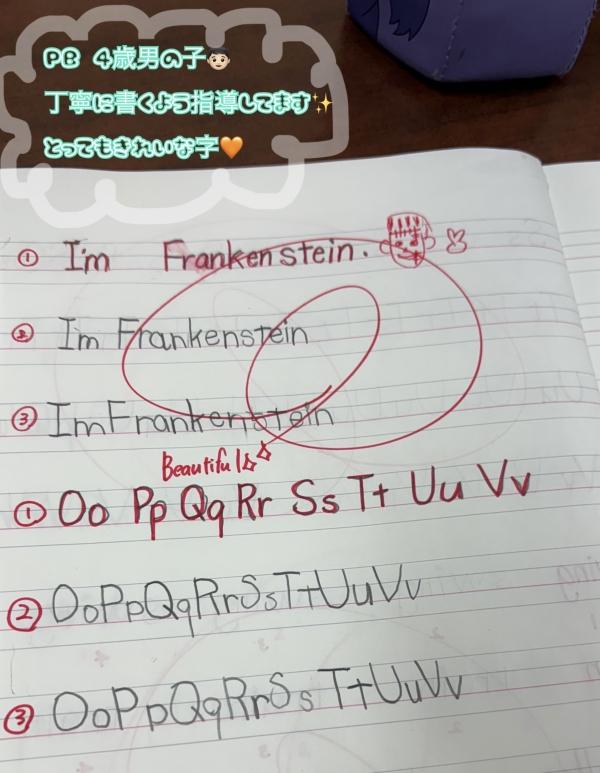 PB 4歳男の子👦🏻
丁寧に書くよう指導してます✨
とってもきれいな字🧡
① I'm Frankenstein.
② Im Frankenstein
③ Im Frankenstein
Beautiful
① Oo Pp Qq Rr Ss Tt Uu Vv
② OoPpQqRrSsTtUuVv
③ OoPpQqRrSsTtUuVv